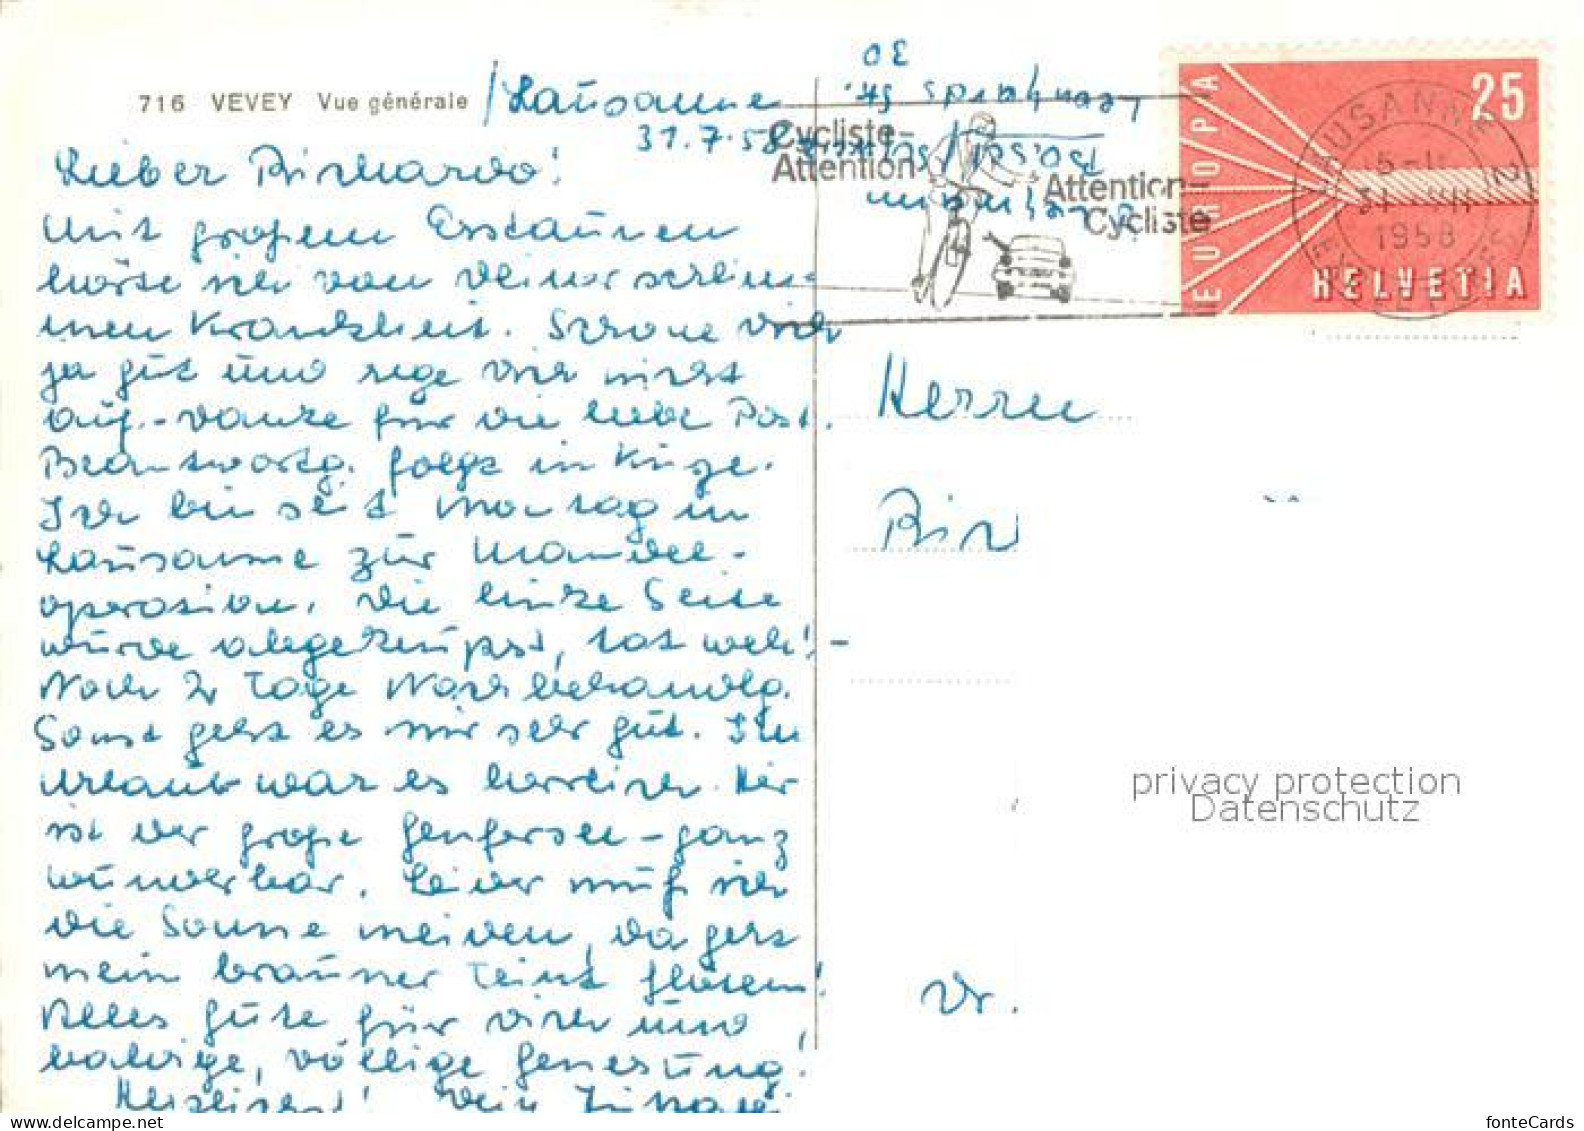 716 VEVEY Vue générale
/Lausanne
31.7.58
Lieber Richardo!
Mit großem Erstaunen
hörte ich von deiner schlim-
men Krankheit. Schone dich
ja gut und rege dich nicht
auf.- Danke für die liebe Post.
Beantwortg. folgt in Kürze.
Ich bin seit Montag in
Lausanne zur Mandel-
operation. Die linke Seite
wurde abgeknipst, tat weh! -
Noch 2 Tage Nachbehandlg.
Sonst geht es mir sehr gut. Im
Urlaub war es herrlich. Hier
ist der große Genfersee - ganz
wunderbar. Leider muß ich
die Sonne meiden, da geht
mein brauner Teint flöten!
Alles Gute für dich und
baldige, völlige Genesung!
Herzlichst! Dein
Leonhards Str.
30
Cycliste-
Attention
Attention-
Cycliste
EUROPA
25
HELVETIA
LAUSANNE 2
1958
Herrn
Dr.
privacy protection
Datenschutz
fonteCards
delcampe.net